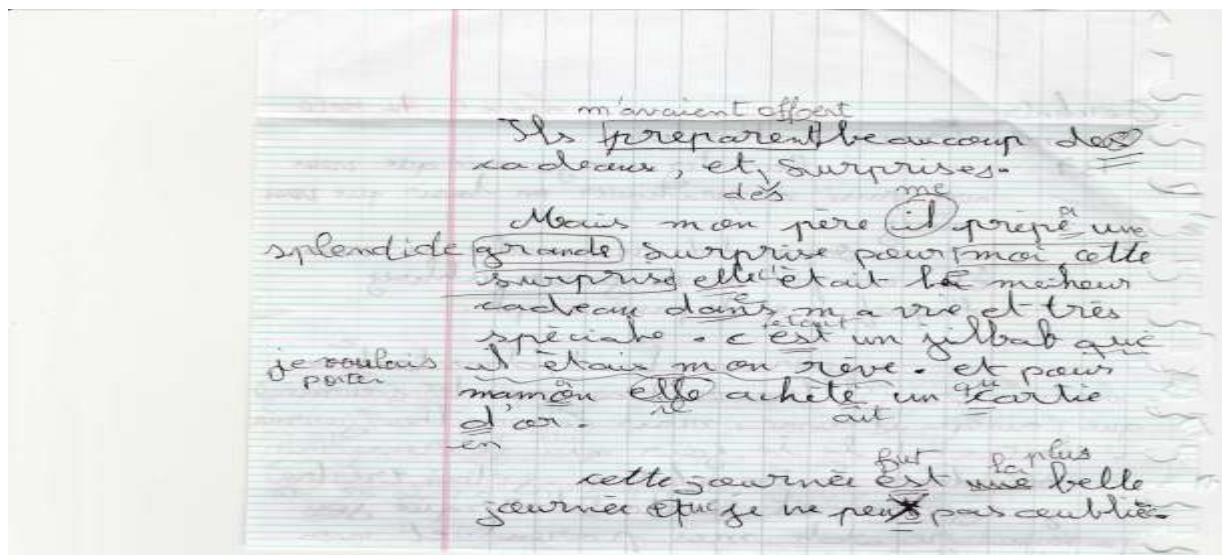 m'avaient offert
Ils préparent beaucoup des
cadeaux, et, surprises.
des me
Mais mon père il prépa une
splendide grande surprise pour moi cette
surprise elle était le meiheur
cadeau dans ma vie et très
spéciale. c'est un jilbab qui
était
je voulais il étais mon rêve. et pour
porter
maman elle achète un cartie
qu
d'or. ait
en
fut la plus
cette journée est une belle
journée que je ne peux pas oublié.